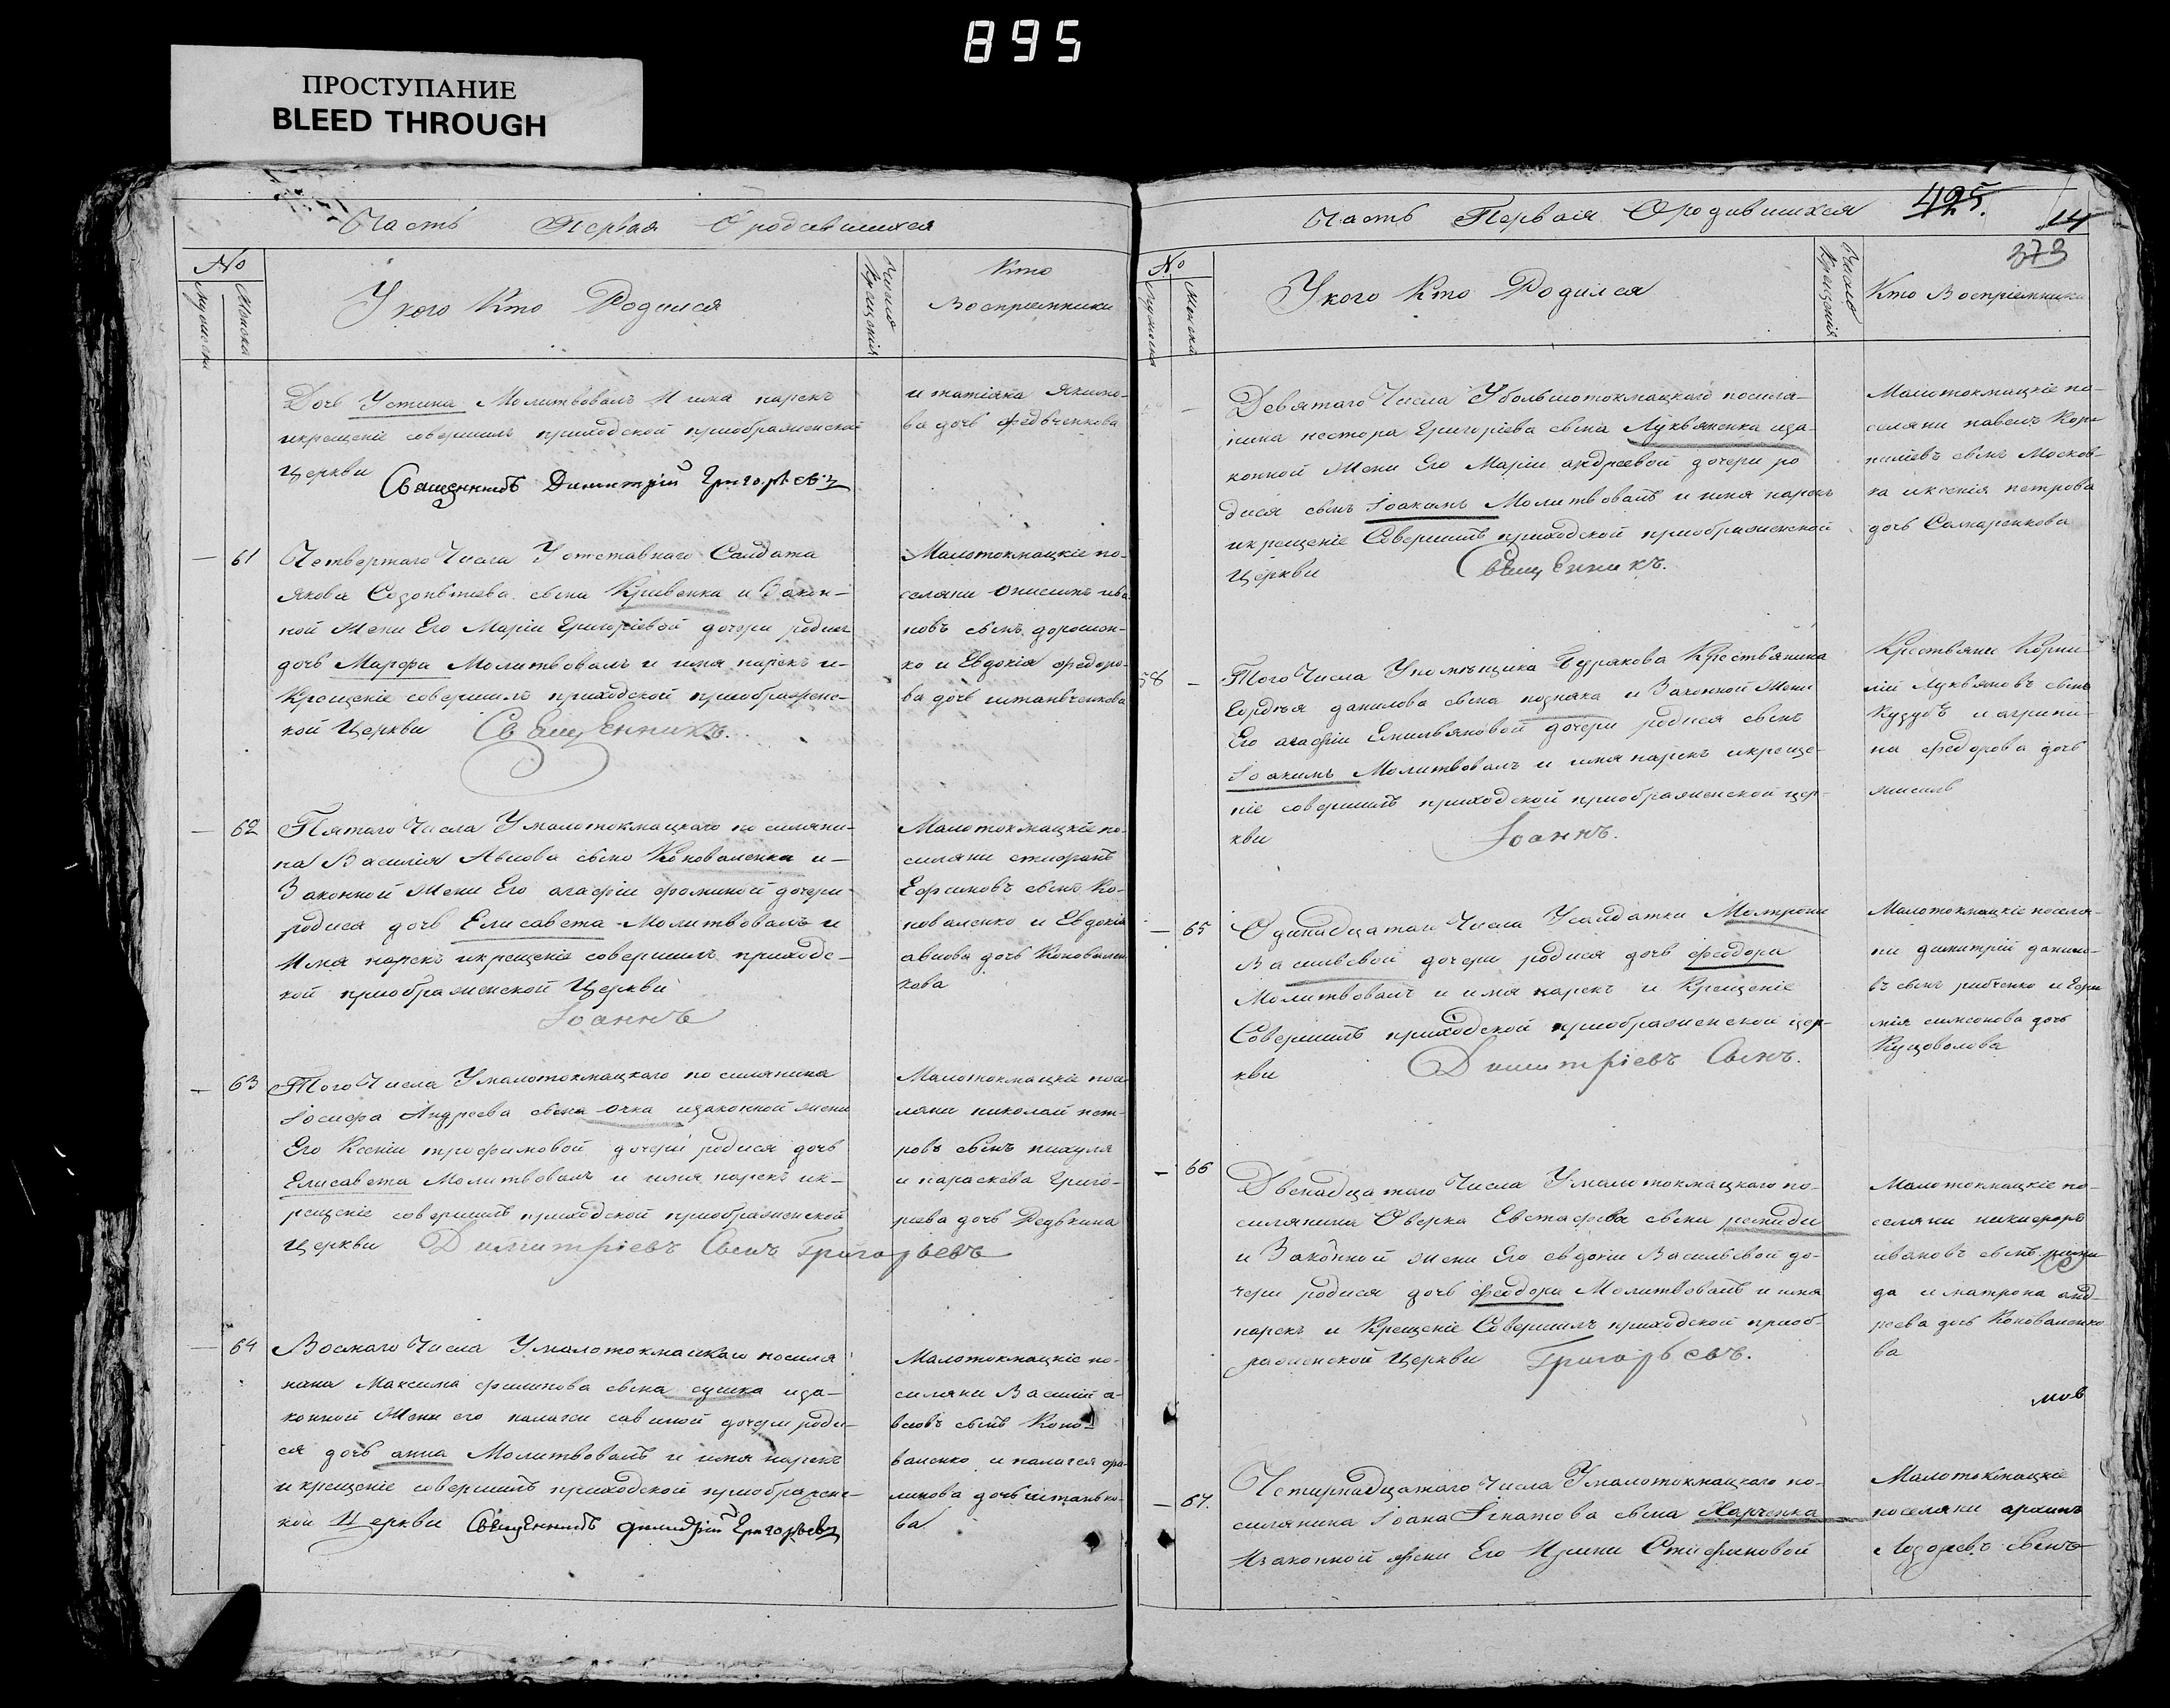 895
ПРОСТУПАНИЕ
BLEED THROUGH
Часть Первая О родившихся
№
Мужеска
Женска
У кого Кто Родился
Число Крещенія
Кто Восприемники
Дочь Устина Молитвовалъ И имя нарекъ
и крещеніе совершилъ приходской приображенской
Церкви Священникъ Димитрій Григорьевъ
и татіяна Якимо-
ва дочь Федьченкова
— 61 Четвертаго Числа У отставнаго Салдата
Якова сына Кривенка и Закон-
ной Жени Его Маріи Григоріевой дочери родися
дочь Марфа Молитвовалъ и имя нарекъ и-
Крещеніе совершилъ приходской приображенс-
кой Церкви Священникъ.
Малотокмацкіе по-
селяни Онисимъ ива
новъ сынъ дорошен-
ко и Евдокія федоро-
ва дочь штаньченкова
— 62 Пятаго Числа У малотокмацкаго по силяни-
на Василія Авиова сына Коноваленка и-
Законной Жени Его агафіи фоминой дочери
родися дочь Елисавета Молитвовалъ и
Имя нарекъ и крещеніе совершилъ приходс-
кой приображенской Церкви
Іоаннъ
Малотокмацкіе по-
силяни стифанъ
Ефимовъ сынъ Ко-
новаленко и Евдокія
авиова дочь Коновален
кова
— 63 Того Числа У малотокмацкаго по силянина
Іосифа Андреева сына Очка и законной жени
Его Ксеніи трофимовой дочери родися дочь
Елисавета Молитвовалъ и имя нарекъ и к-
рещеніе совершилъ приходской приображенской
Церкви Димитріевъ Сынъ Григорьевъ
Малотокмацкіе посе
ляни николай пет-
ровъ сынъ пихуля
и параскева Григо-
риева дочь Дедькина
— 64 Восмаго Числа У малотокмацкаго посиля
нина Максима филипова сына сушка и за-
конной Жени его палажи савиной дочери роди-
ся дочь анна Молитвовалъ и имя нарекъ
и крещеніе совершилъ приходской приображенс-
кой Церкви Священникъ Димидрій Григорьевъ
Малотокмацкіе по-
силяни Василій а-
виовъ сынъ Коно-
валенко и палагея фи-
липова дочь штанько-
ва
Часть Первая О родившихся
425.
14
373
№
Мужеска
Женска
У кого Кто Родился
Число Крещенія
Кто Восприемники
— Девятаго Числа У большотокмацкаго посиля-
нина нестора Григоріева сына Лукьяненка и за-
конной Жени Его Маріи андреевой дочери ро
дися сынъ Іоакимъ Молитвовалъ и имя нарекъ
и крещеніе Совершилъ приходской приображенской
Церкви Священникъ.
Малотокмацкіе по-
селяни павелъ Кор-
ниліевъ сынъ Москов-
ка и ксенія петрова
дочь Самаренкова
58 — Того Числа У помѣщика Буракова Крестьянина
Гордѣя данилова сына позняка и Законной Жени
Его агафіи Емильяновой дочери родися сынъ
Іоакимъ Молитвовалъ и имя нарекъ и креще-
ніе совершилъ приходской приображенской цер-
кви Іоаннъ.
Крестьяни Корни-
лій Лукьяновъ сынъ
Кузубъ и агрипи-
на федорова дочь
— 65 Одинадцатаго Числа У салдатки Мотрони
Васильевой дочери родися дочь феодора
Молитвовалъ и имя нарекъ и Крещеніе
Совершилъ приходской приображенской цер-
кви Димитріевъ Сынъ.
Малотокмацкіе поселя-
ни димитрій данило-
въ сынъ рибченко и
симеонова дочь
Куцоволова
— 66 Двенадцатаго Числа У малотокмацкаго по-
силянина Оверка Евстафѣва сына
и Законной жени Его евдокіи Васильевой до-
чери родися дочь феодора Молитвовалъ и имя
нарекъ и Крещеніе Совершилъ приходской приоб-
раженской Церкви Григорьевъ.
Малотокмацкіе по-
селяни никифоръ
ивановъ сынъ
да и матрона анд-
реева дочь Коноваленко
ва
— 67. Четирнадцатаго Числа У малотокмацкаго по-
силянина Іоана Игнатова сына Харченка
И законной жени Его Ирини Стифановой
Малотокмацкіе
поселяни архипъ
сынъ